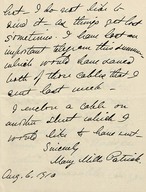 but I do not like to
send it - as things get lost
sometimes. I have lost an
important telegram this summer
which would have saved
both of those cables that I
sent last week -
I enclose a cable on
another sheet which I
would like to have sent.
Sincerely
Mary Mills Patrick
Aug. 6, 1910